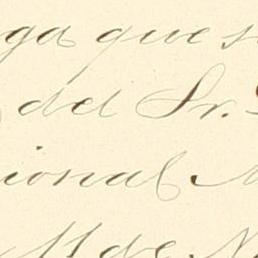 ga que s
del Sr.
ional
de